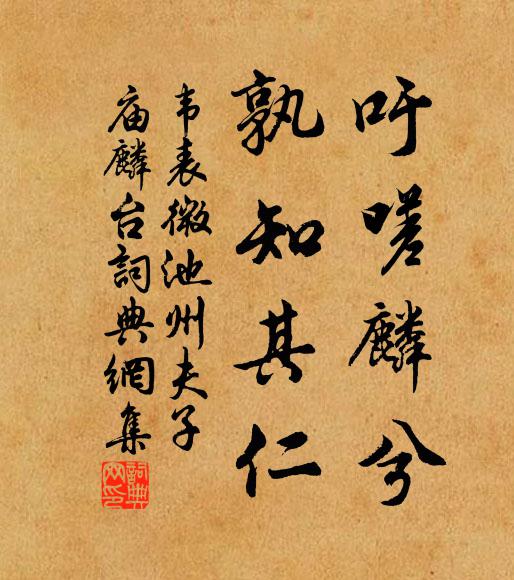 吁嗟麟兮
孰知其仁
韦表微池州夫子
庙麟台詞典網集
詞典网印